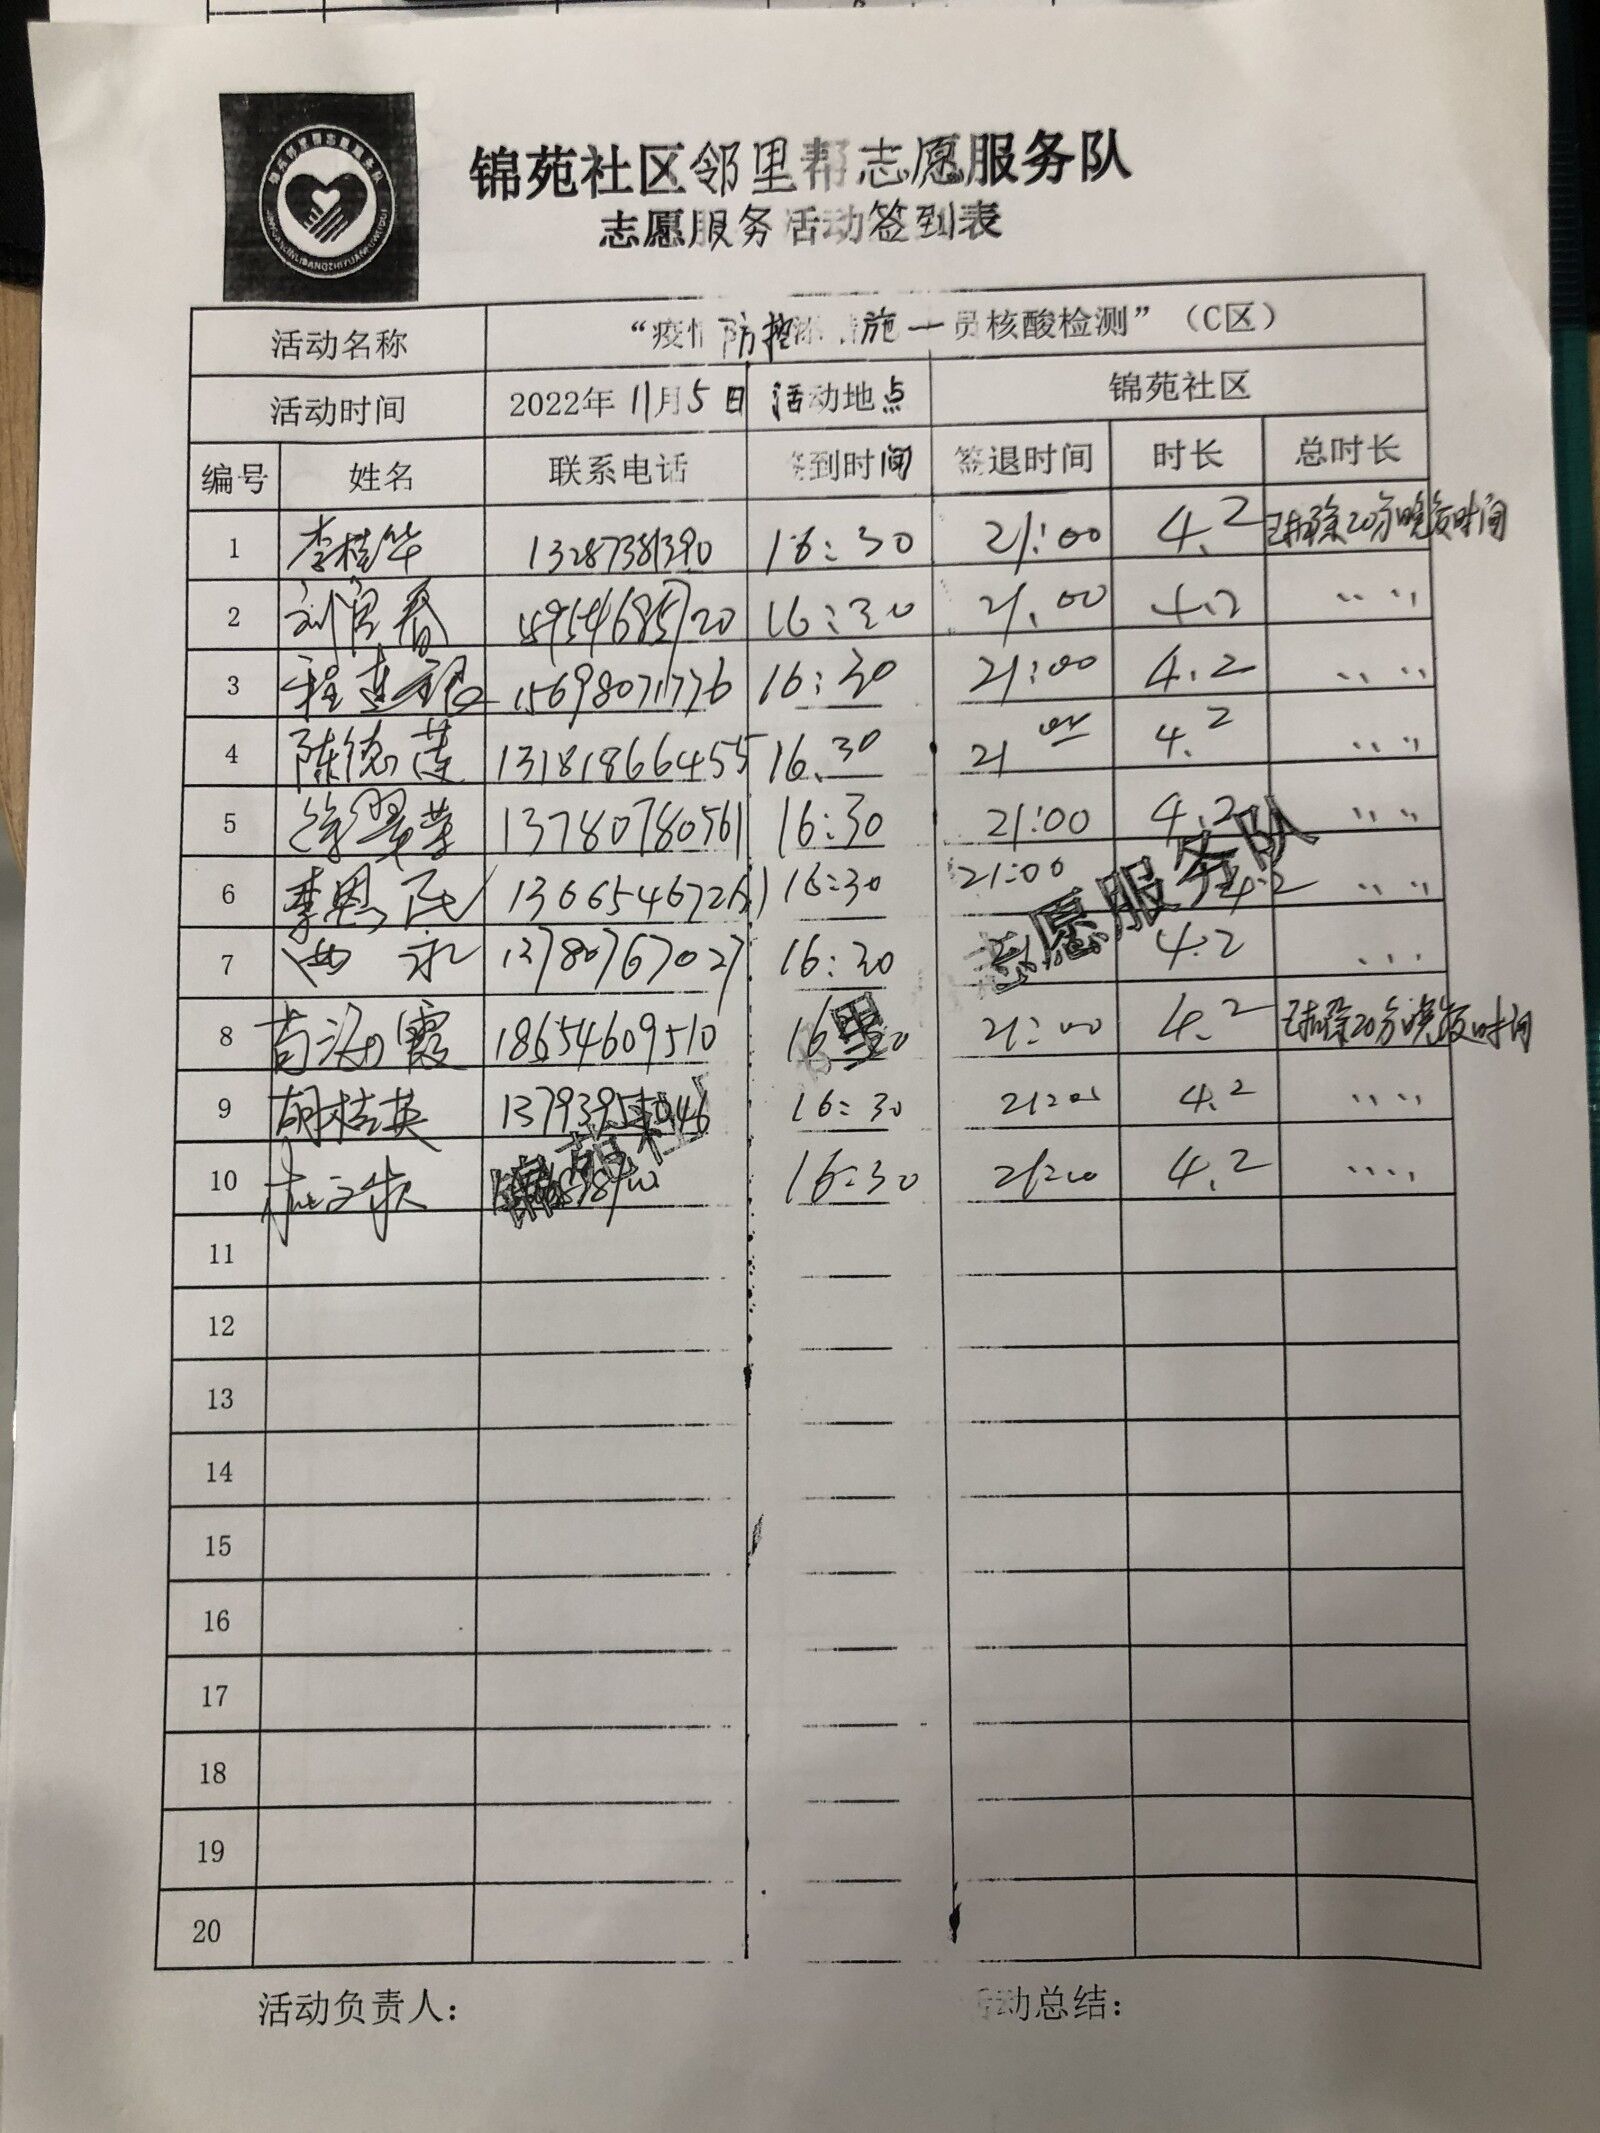 锦苑社区邻里帮志愿服务队
志愿服务活动签到表
活动名称 “疫情防控 措施一 员核酸检测”（C区）
活动时间 2022年11月5日 活动地点 锦苑社区
编号 姓名 联系电话 签到时间 签退时间 时长 总时长
1 李桂华 13287381390 16:30 21:00 4.2 已扣除20分晚饭时间
2 刘宜春 15954685720 16:30 21.00 4.2 〃 〃
3 程建 15698071776 16:30 21:00 4.2 〃 〃
4 陈德莲 13181866455 16.30 21 00 4.2 〃 〃
5 徐翠莲 13780780561 16:30 21:00 4.2 〃 〃
6 李恩民 13665467261 16:30 21:00 4.2 〃 〃
7 永 13780767027 16:30 21 4.2
8 苟海霞 18654609510 16 30 21:00 4.2 已扣除20分晚饭时间
9 胡桂英 1379395 046 16:30 21:00 4.2 〃 〃
10 16:30 21:00 4.2
锦苑社 里 志愿服务队
11
12
13
14
15
16
17
18
19
20
活动负责人： 活动总结：